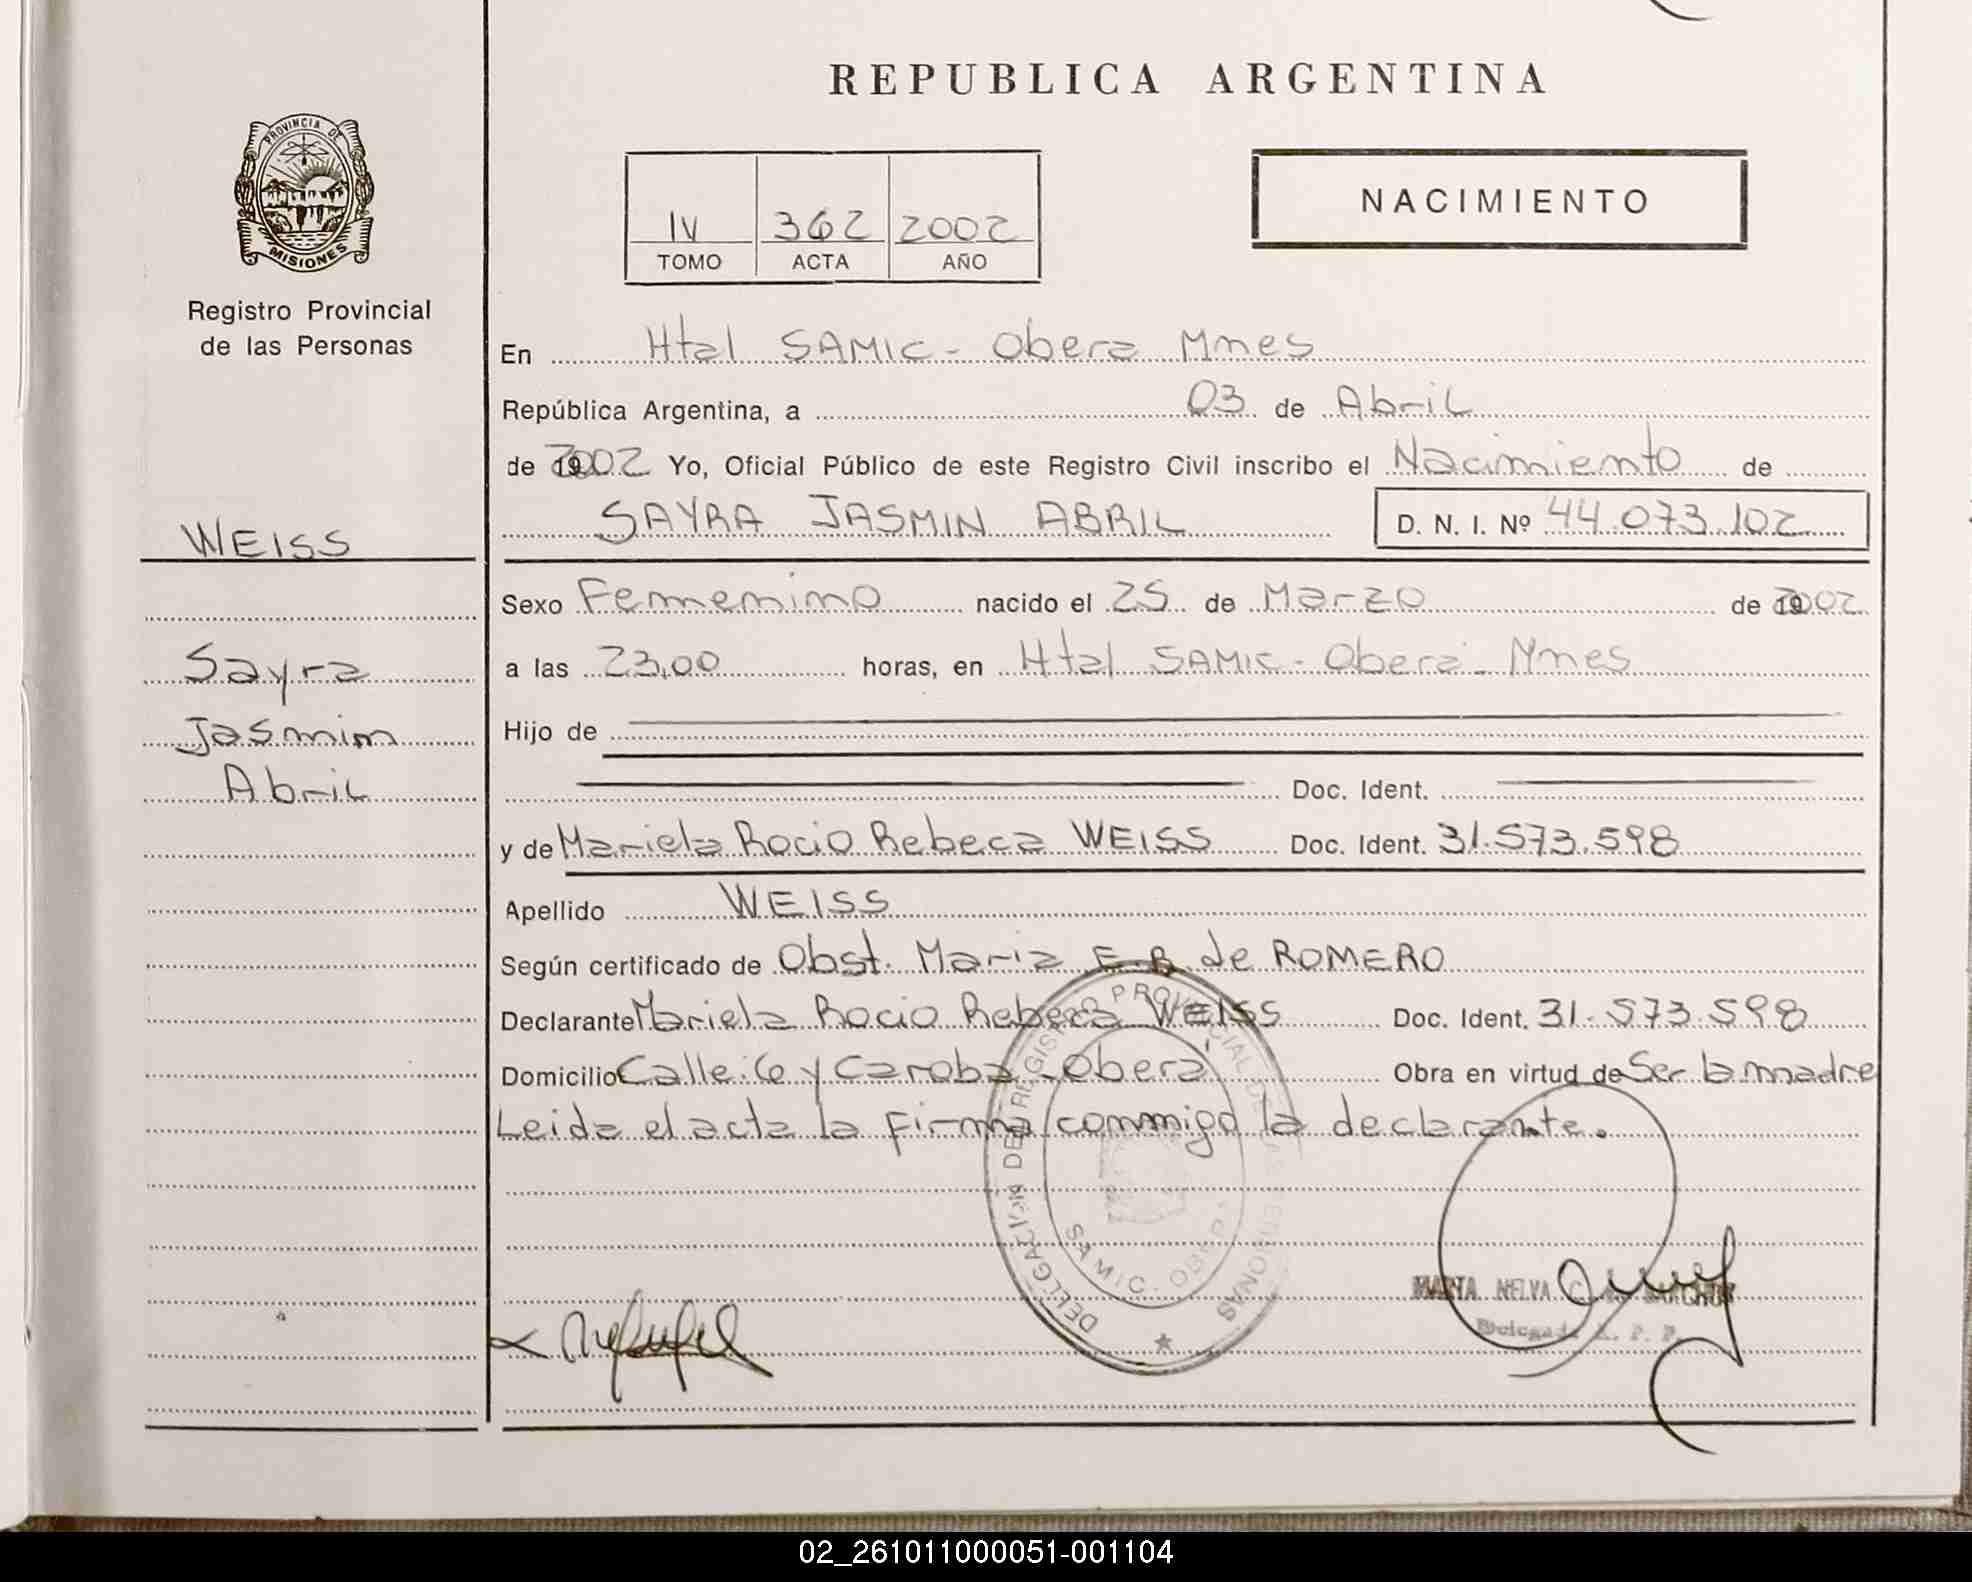 REPUBLICA ARGENTINA
PROVINCIA DE
MISIONES
Registro Provincial
de las Personas
NACIMIENTO
IV 362 2002
TOMO ACTA AÑO
En Htal SAMIC - Obera Mnes
República Argentina, a 03 de Abril
de 2002 Yo, Oficial Público de este Registro Civil inscribo el Nacimiento de
SAYRA JASMIN ABRIL D. N. I. Nº 44.073.102
WEISS
Sayra
Jasmin
Abril
Sexo Femenino nacido el 25 de Marzo de 2002
a las 23,00 horas, en Htal SAMIC - Obera - Mnes
Hijo de
Doc. Ident.
y de Mariela Rocio Rebeca WEISS Doc. Ident. 31.573.598
Apellido WEISS
Según certificado de Obst. Maria E. B. de ROMERO
Declarante Mariela Rocio Rebeca WEISS Doc. Ident. 31.573.598
Domicilio Calle: 6 y Caroba - Oberá Obra en virtud de Ser la madre
Leida el acta la firma conmigo la declarante.
PROVINCIAL DE LAS PERSONAS
SAMIC - OBERA
MARTA NELVA
R. P. P.
02_261011000051-001104